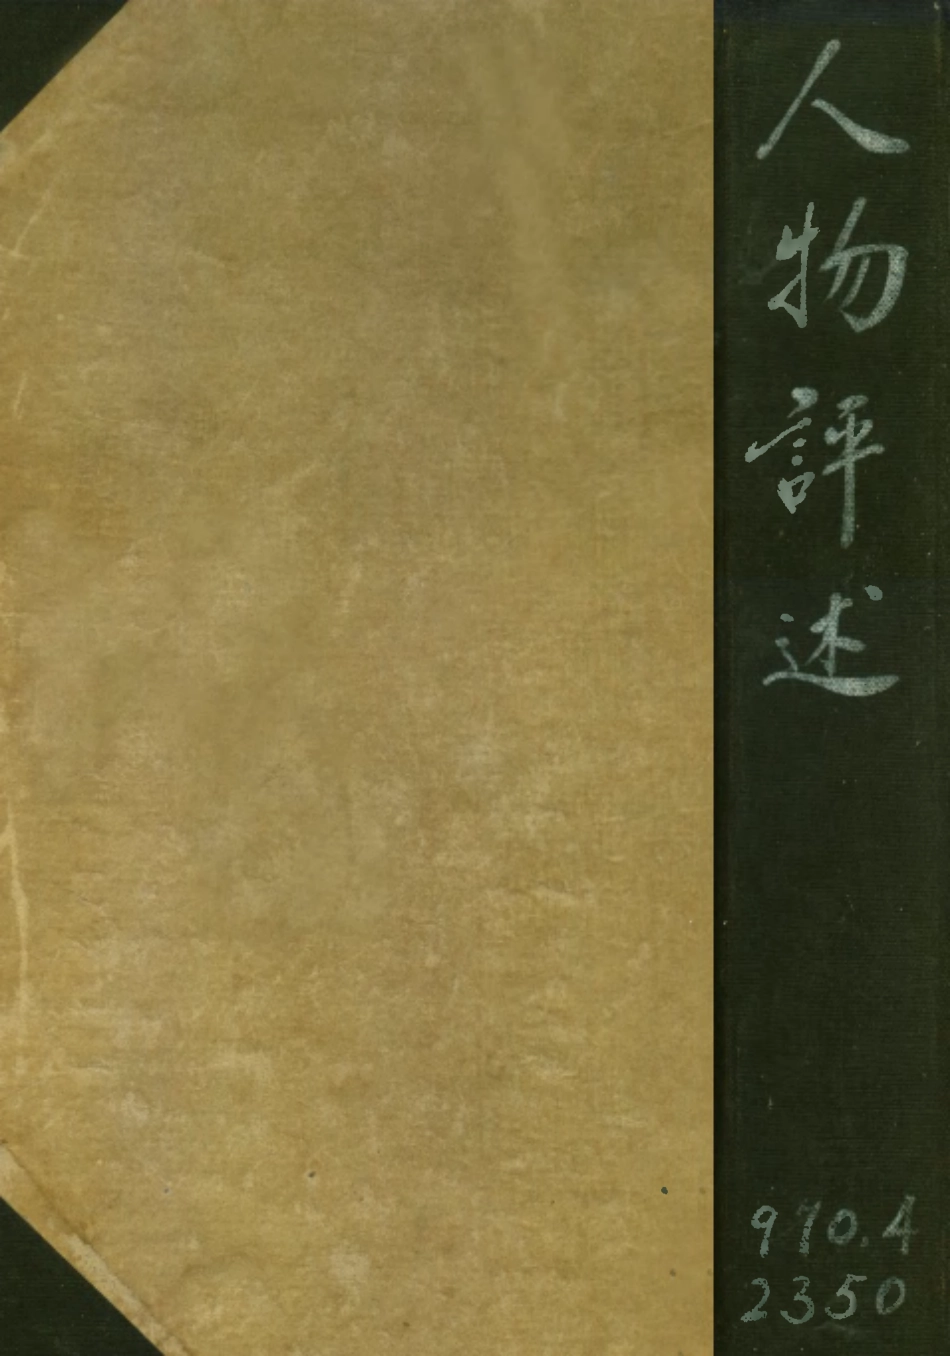 人物評述
970.4
2350